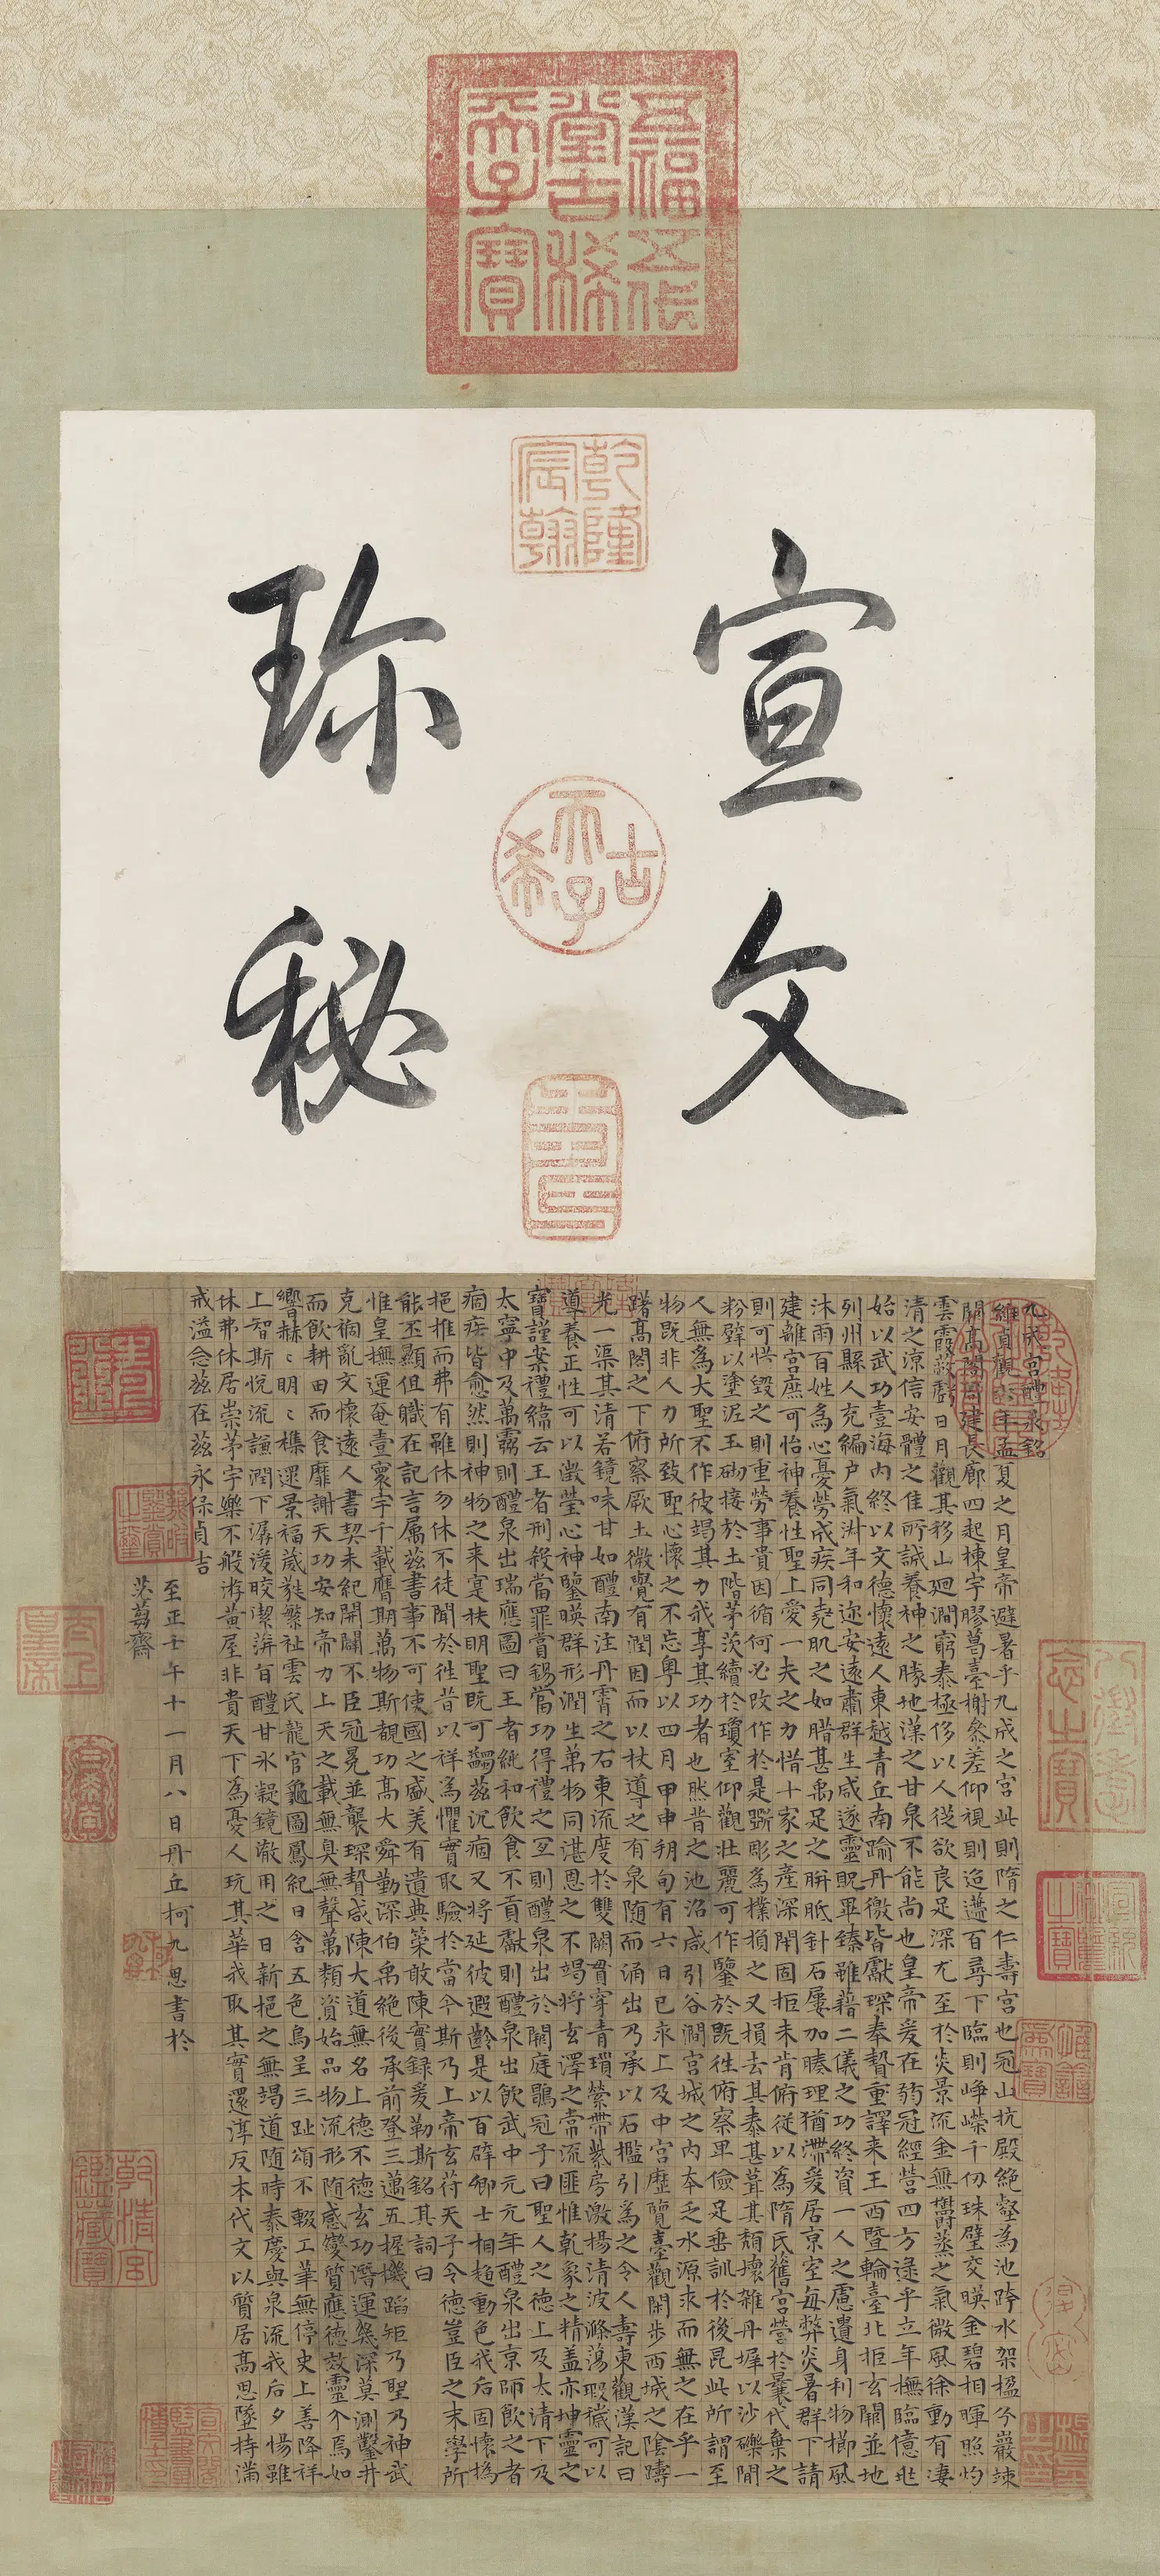 五福五代
堂古稀
天子寶
乾隆
宸翰
宣文
珎秘
古希天子
九成宮醴泉銘
維貞觀六年孟夏之月皇帝避暑乎九成之宮此則隋之仁壽宮也冠山抗殿絕壑為池跨水架楹分巖竦
闕高閣周建長廊四起棟宇膠葛臺榭參差仰視則迢遰百尋下臨則崢嶸千仞珠璧交暎金碧相暉照灼
雲霞蔽虧日月觀其移山迴澗窮泰極侈以人從欲良足深尤至於炎景流金無鬱蒸之氣微風徐動有淒
清之涼信安體之佳所誠養神之勝地漢之甘泉不能尚也皇帝爰在弱冠經營四方逮乎立年撫臨億兆
始以武功壹海內終以文德懷遠人東越青丘南踰丹徼皆獻琛奉贄重譯來王西暨輪臺北拒玄闕並地
列州縣人充編戶氣淑年和迩安遠肅群生咸遂靈貺畢臻雖藉二儀之功終資一人之慮遺身利物櫛風
沐雨百姓為心憂勞成疾同堯肌之如腊甚禹足之胼胝針石屢加腠理猶滯爰居京室每弊炎暑群下請
建離宮庶可怡神養性聖上愛一夫之力惜十家之產深閉固拒未肯俯從以為隋氏舊宮營於曩代棄之
則可惜毀之則重勞事貴因循何必改作於是斲彫為樸損之又損去其泰甚葺其頹壞雜丹墀以沙礫間
粉壁以塗泥玉砌接於土階茅茨續於瓊室仰觀壯麗可作鑒於既往俯察卑儉足垂訓於後昆此所謂至
人無為大聖不作彼竭其力我享其功者也然昔之池沼咸引谷澗宮城之內本乏水源求而無之在乎一
物既非人力所致聖心懷之不忘粵以四月甲申朔旬有六日己亥上及中宮歷覽臺觀閑步西城之陰躊
躇高閣之下俯察厥土微覺有潤因而以杖導之有泉隨而涌出乃承以石檻引為之令人壽東觀漢記曰
光一渠其清若鏡味甘如醴南注丹霄之右東流度於雙闕貫穿青瑣縈帶紫房激揚清波滌蕩瑕穢可以
導養正性可以澂瑩心神鑒暎群形潤生萬物同湛恩之不竭將玄澤之常流匪惟乾象之精蓋亦坤靈之
寶謹案禮緯云王者刑殺當罪賞錫當功得禮之宜則醴泉出於闕庭鶡冠子曰聖人之德上及太清下及
太寧中及萬靈則醴泉出瑞應圖曰王者純和飲食不貢獻則醴泉出飲武中元元年醴泉出京師飲之者
痼疾皆愈然則神物之來寔扶明聖既可蠲茲沉痼又將延彼遐齡是以百辟卿士相趨動色我后固懷撝
挹推而弗有雖休勿休不徒聞於往昔以祥為懼實取驗於當今斯乃上帝玄符天子令德豈臣之末學所
能丕顯但職在記言屬茲書事不可使國之盛美有遺典策敢陳實錄爰勒斯銘其詞曰
惟皇撫運奄壹寰宇千載膺期萬物斯覩功高大舜勤深伯禹絕後承前登三邁五握機蹈矩乃聖乃神武
克禍亂文懷遠人書契未紀開闢不臣冠冕並襲琛贄咸陳大道無名上德不德玄功潛運幾深莫測鑿井
而飲耕田而食靡謝天功安知帝力上天之載無臭無聲萬類資始品物流形隨感變質應德效靈介焉如
響赫〻明〻雜遝景福葳蕤繁祉雲氏龍官龜圖鳳紀日含五色烏呈三趾頌不輟工筆無停史上善降祥
上智斯悅流謙潤下潺湲皎潔蓱旨醴甘冰凝鏡澈用之日新挹之無竭道隨時泰慶與泉流我后夕惕雖
休弗休居崇茅宇樂不般游黃屋非貴天下為憂人玩其華我取其實還淳反本代文以質居高思墜持滿
戒溢念茲在茲永保貞吉
至正壬午十一月八日丹丘柯九思書於
芸芻齋
八徵耄念之寶
宣統御覽之寶
乾清宮鑒藏寶